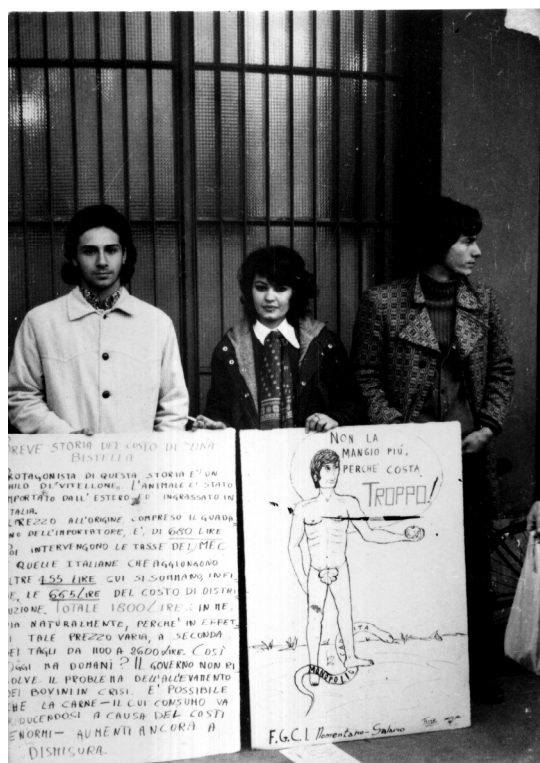 BREVE STORIA DEL COSTO DI UNA
BISTELLA
ROTAGONISTA DI QUESTA STORIA E' UN
ULO DI VITELLONE. L'ANIMALE E' STATO
MPORTATO DALL'ESTERO ED INGRASSATO IN
TALIA.
PREZZO ALL'ORIGINE, COMPRESO IL GUADA
NO DELL'IMPORTATORE, E', DI 680 LIRE
DI INTERVENGONO LE TASSE DEL MEC
QUELLE ITALIANE CHE AGGIUNGONO
LTRE 455 LIRE CUI SI SOMMANO INFI
E, LE 665 LIRE DEL COSTO DI DISTRI
UZIONE. TOTALE 1800 LIRE. IN ME
IA NATURALMENTE, PERCHE' IN EFFET
I TALE PREZZO VARIA, A SECONDA
EI TAGLI DA 1100 A 2600 LIRE. COSÌ
OGGI MA DOMANI? IL GOVERNO NON RI
OLVE. IL PROBLEMA DELL'ALLEVAMENTO
DEI BOVINI IN CRISI. E' POSSIBILE
CHE LA CARNE - IL CUI CONSUMO VA
RIDUCENDOSI A CAUSA DEL COSTI
ENORMI - AUMENTI ANCORA A
DISMISURA.
NON LA
MANGIO PIÚ,
PERCHE COSTA
TROPPO!
MONOPOLI
F.G.C.I. Nomentano - Salario